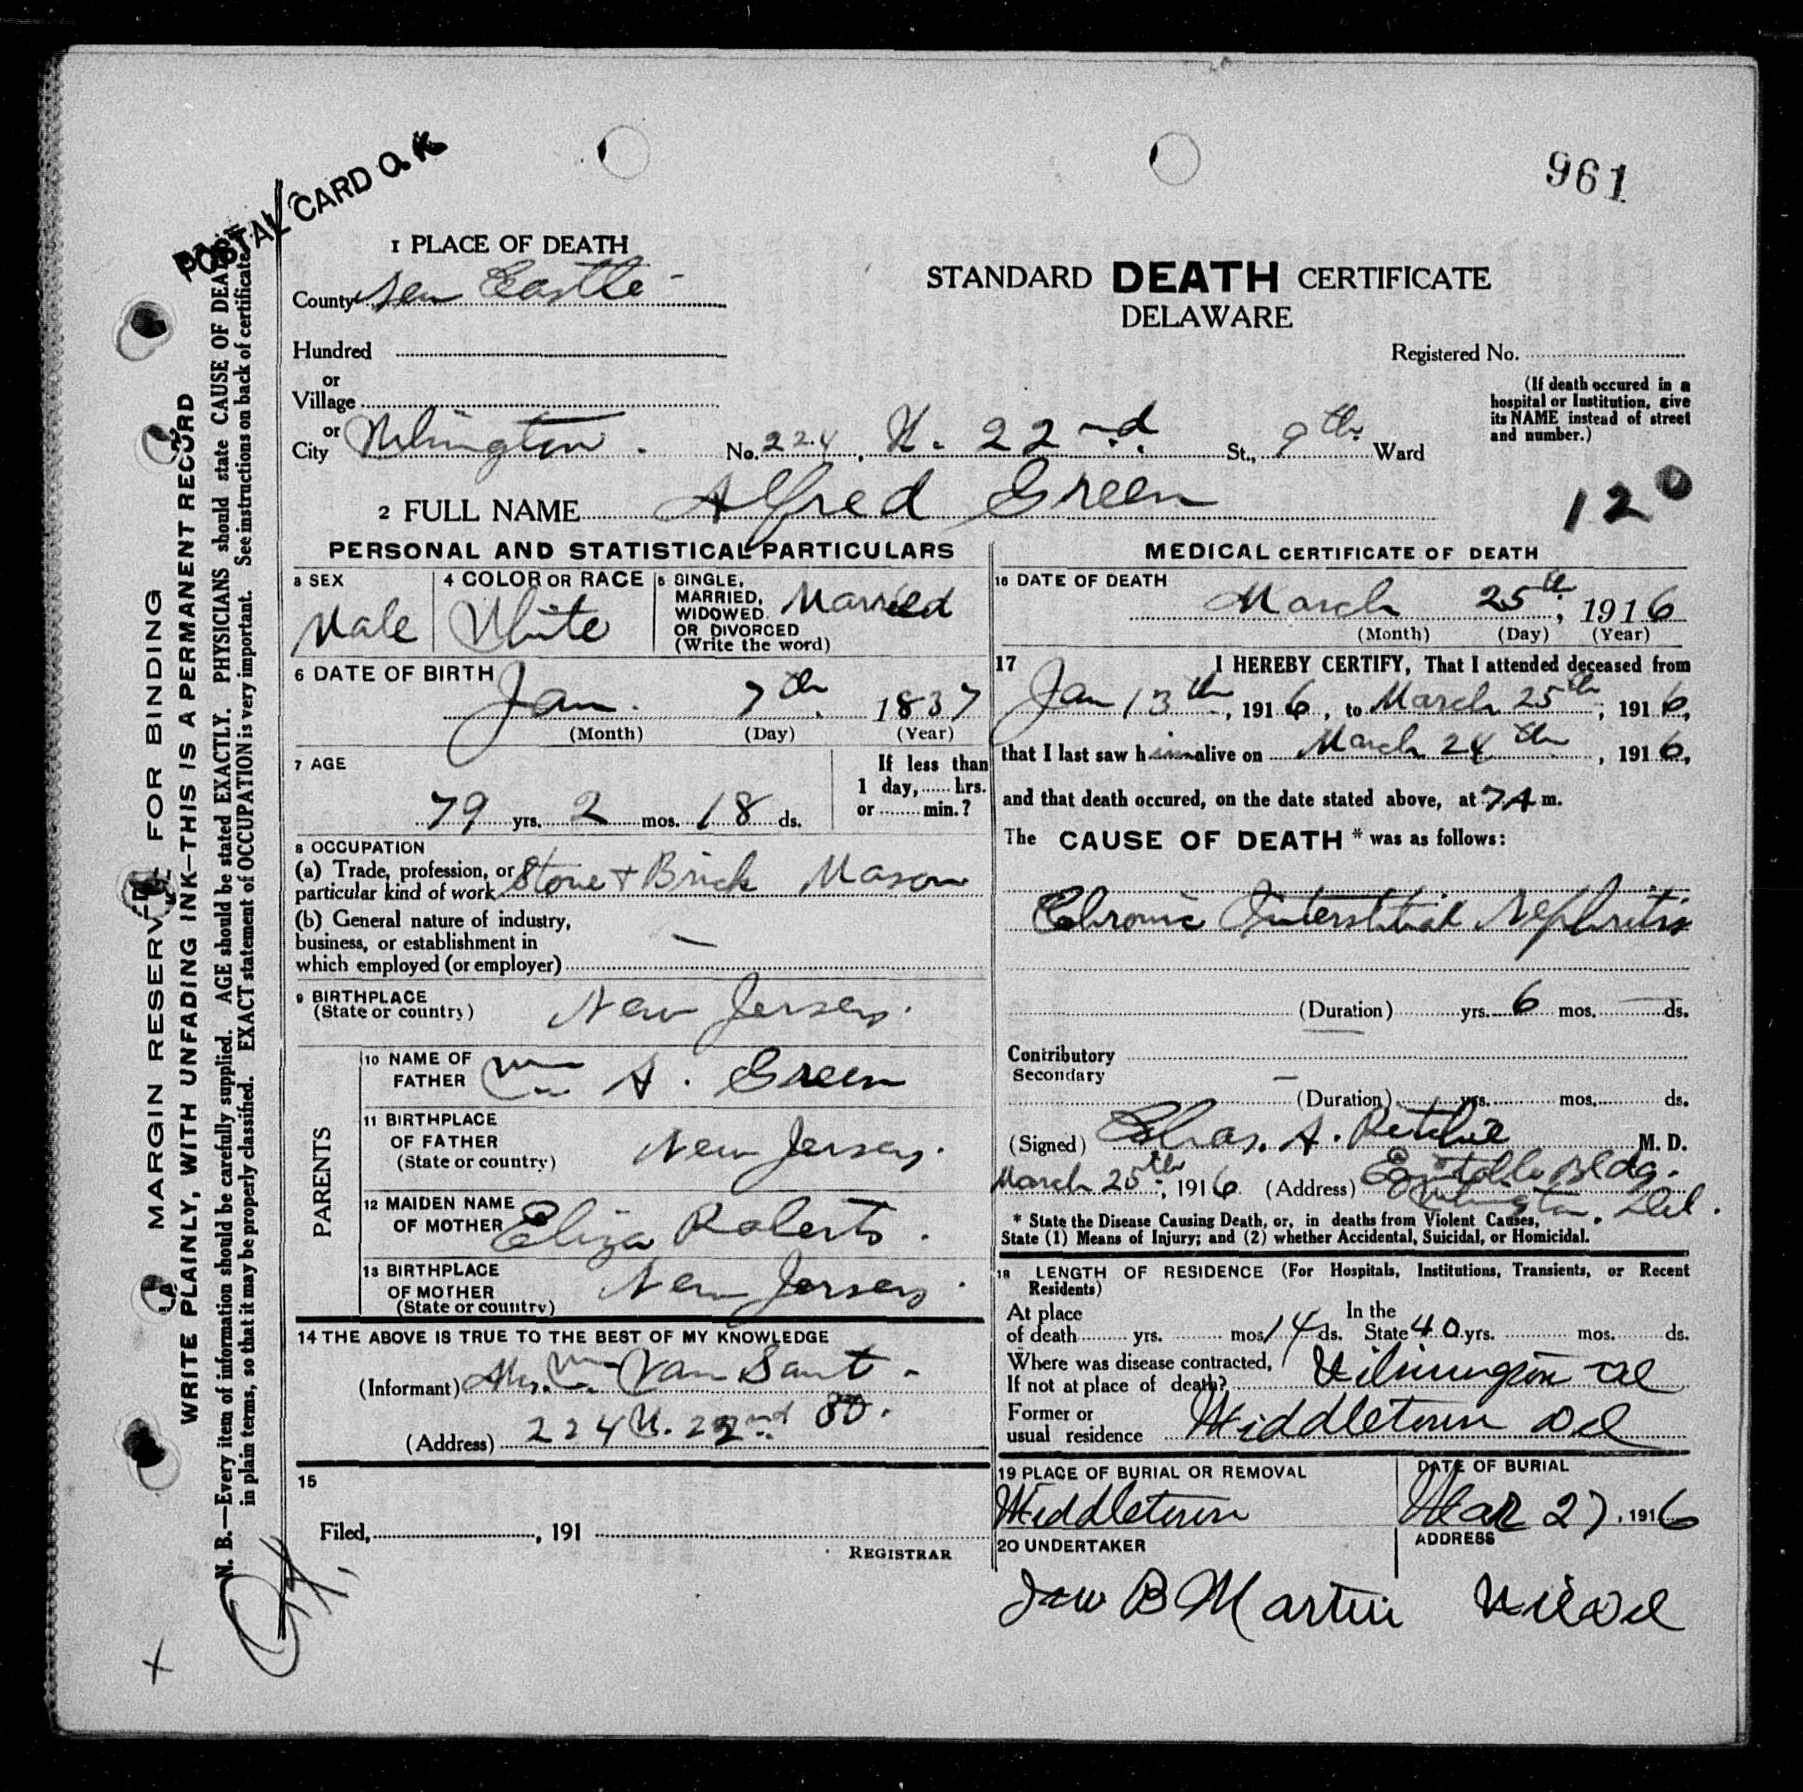 POSTAL CARD O. K.
961
1 PLACE OF DEATH
County New Castle
STANDARD DEATH CERTIFICATE
DELAWARE
Hundred
Registered No.
or
Village
(If death occured in a
hospital or Institution, give
its NAME instead of street
and number.)
or
City Wilmington. No. 224, W. 22nd. St., 9th Ward
2 FULL NAME Alfred Green
12
PERSONAL AND STATISTICAL PARTICULARS
3 SEX
Male
4 COLOR OR RACE
White
5 SINGLE,
MARRIED,
WIDOWED.
OR DIVORCED
(Write the word)
Married
6 DATE OF BIRTH
Jan. 7th. 1837
(Month) (Day) (Year)
7 AGE
79 yrs. 2 mos. 18 ds.
If less than
1 day, hrs.
or min.?
8 OCCUPATION
(a) Trade, profession, or
particular kind of work Stone + Brick Mason
(b) General nature of industry,
business, or establishment in
which employed (or employer) —
9 BIRTHPLACE
(State or country) New Jersey.
PARENTS
10 NAME OF
FATHER Wm A. Green
11 BIRTHPLACE
OF FATHER
(State or country) New Jersey.
12 MAIDEN NAME
OF MOTHER Eliza Roberts.
13 BIRTHPLACE
OF MOTHER
(State or country) New Jersey.
14 THE ABOVE IS TRUE TO THE BEST OF MY KNOWLEDGE
(Informant) Mrs. Wm Van Sant.
(Address) 224 W. 22nd St.
15
Filed, , 191
REGISTRAR
MEDICAL CERTIFICATE OF DEATH
16 DATE OF DEATH
March 25th, 1916
(Month) (Day) (Year)
17 I HEREBY CERTIFY, That I attended deceased from
Jan 13th, 1916, to March 25th, 1916,
that I last saw him alive on March 24th, 1916,
and that death occured, on the date stated above, at 7 A m.
The CAUSE OF DEATH * was as follows:
Chronic Interstitial Nephritis
(Duration) yrs. 6 mos. ds.
Contributory
Secondary —
(Duration) yrs. mos. ds.
(Signed) Chas. A. Ritchie M. D.
March 25th, 1916 (Address) Equitable Bldg.
Wilmington, Del.
* State the Disease Causing Death, or, in deaths from Violent Causes,
State (1) Means of Injury; and (2) whether Accidental, Suicidal, or Homicidal.
18 LENGTH OF RESIDENCE (For Hospitals, Institutions, Transients, or Recent
Residents)
At place
of death yrs. mos 14 ds. In the State 40 yrs. mos. ds.
Where was disease contracted,
If not at place of death? Wilmington Del
Former or
usual residence Middletown Del
19 PLACE OF BURIAL OR REMOVAL
Middletown
DATE OF BURIAL
Mar 27, 1916
20 UNDERTAKER
ADDRESS
B Martin Wil Del
MARGIN RESERVED FOR BINDING
WRITE PLAINLY, WITH UNFADING INK—THIS IS A PERMANENT RECORD
N. B.—Every item of information should be carefully supplied. AGE should be stated EXACTLY. PHYSICIANS should state CAUSE OF DEATH
in plain terms, so that it may be properly classified. EXACT statement of OCCUPATION is very important. See instructions on back of certificate.